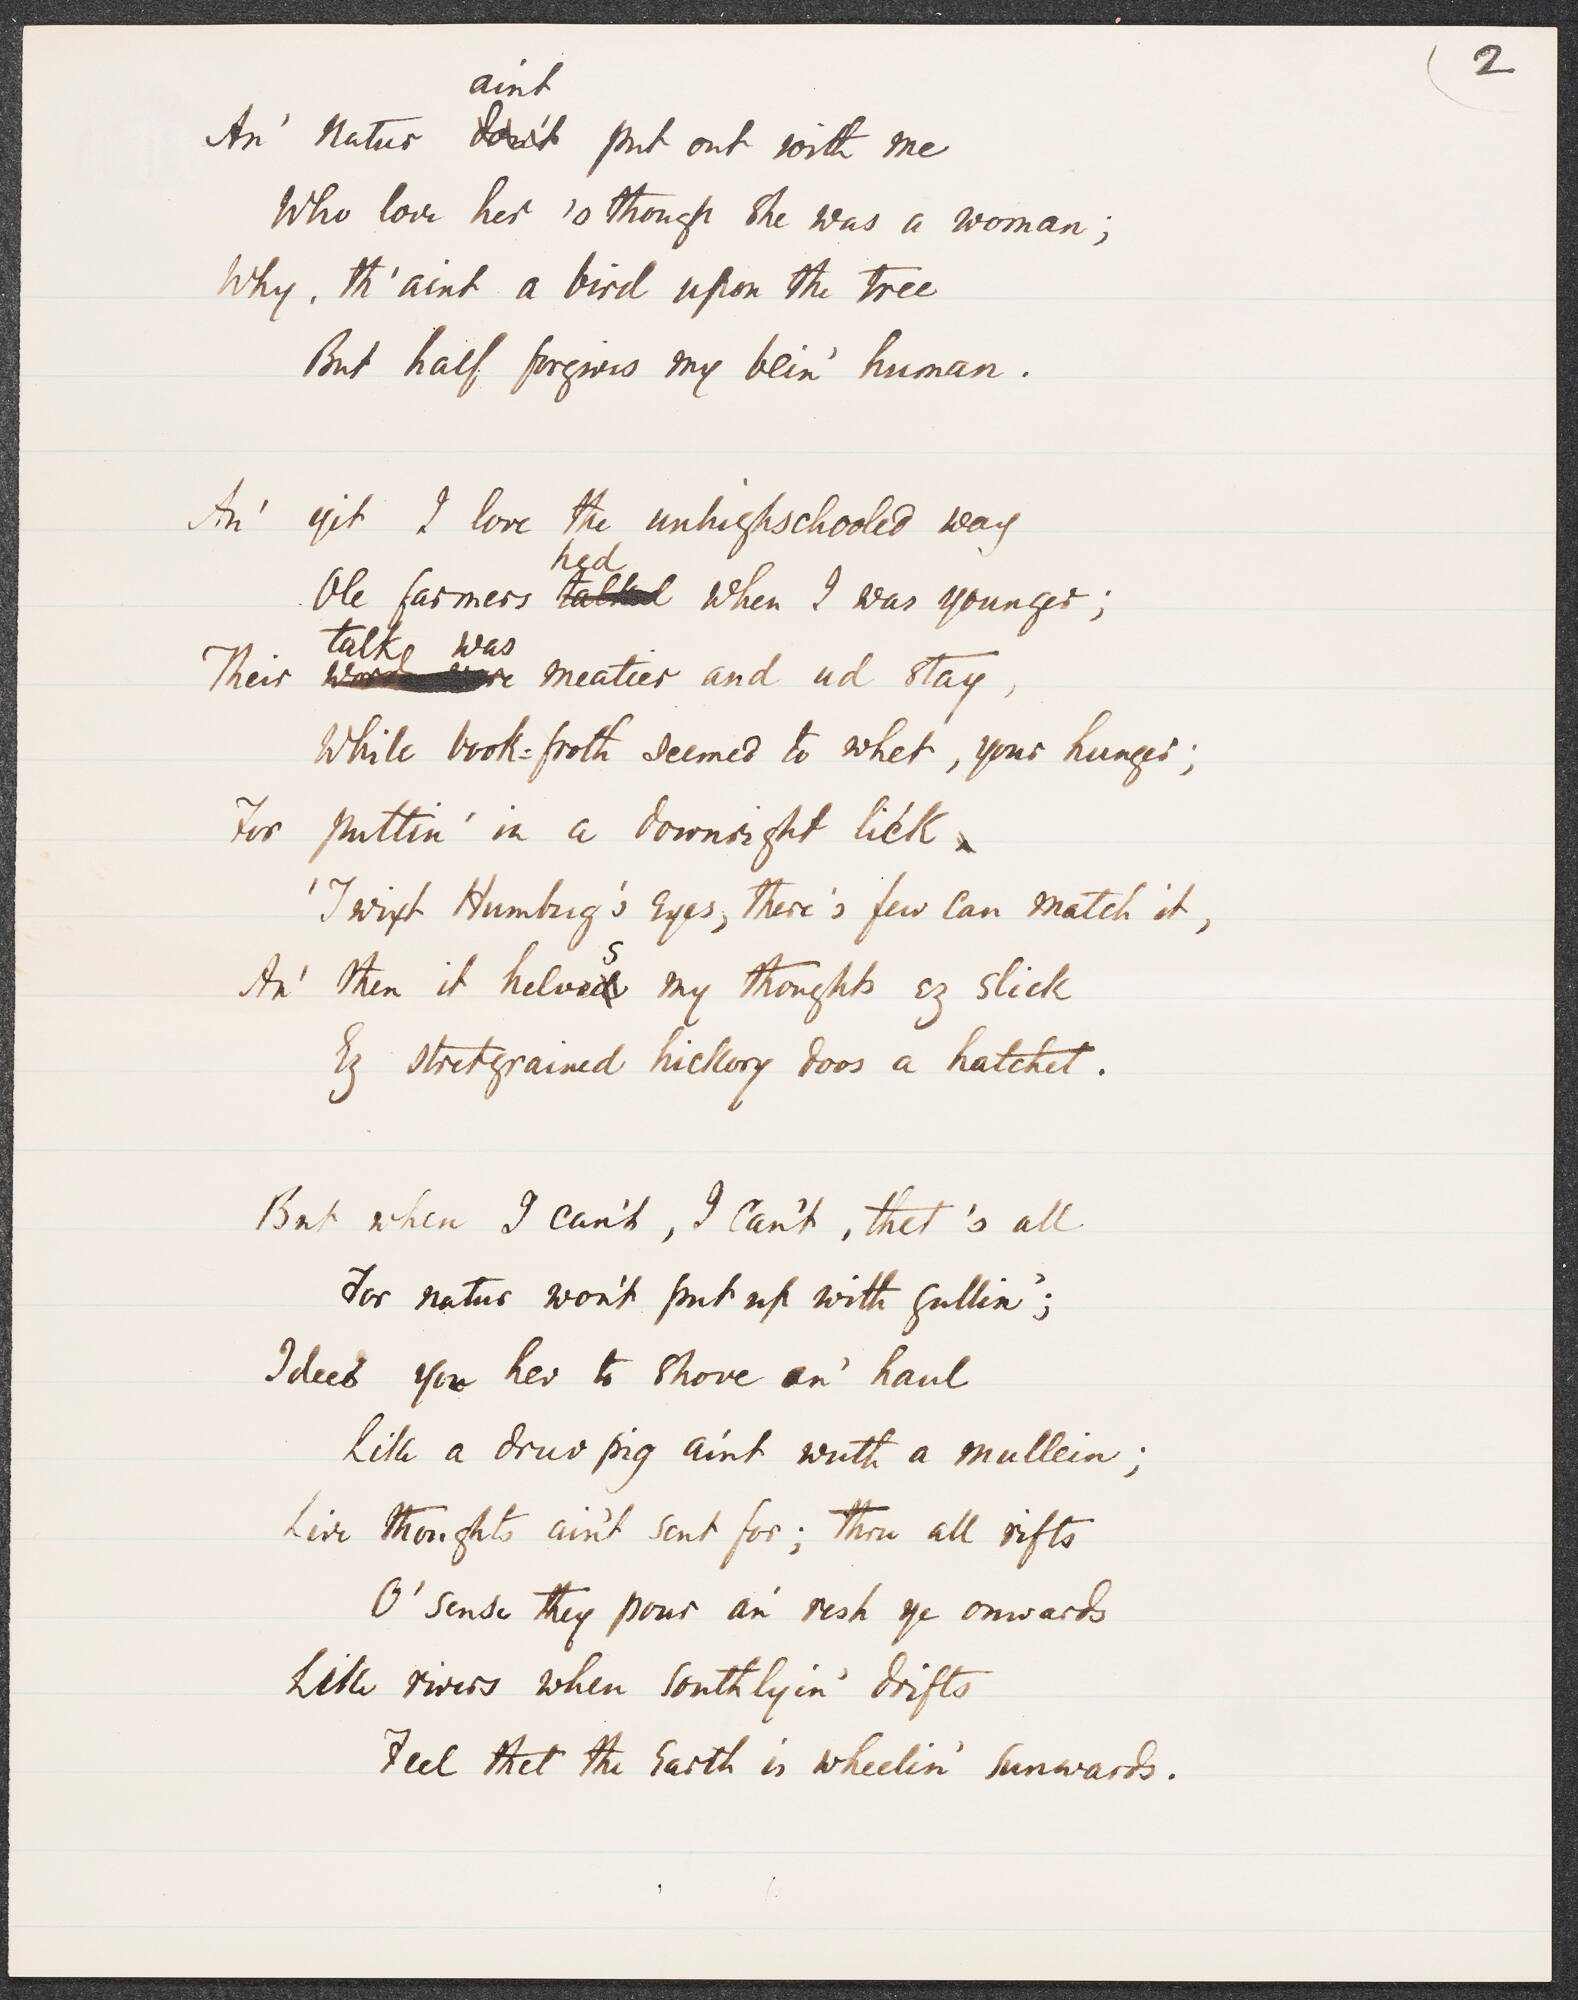 2
aint
An' Natur don't put out with me
Who love her 's though she was a woman;
Why, th' aint a bird upon the tree
But half forgives my bein' human.
An' yit I love the unhighschooled way
hed
Ole farmers talked when I was younger;
talk was
Their word were meatier and ud stay,
While book-froth seemed to whet, your hunger;
For puttin' in a downright lick
'Twixt Humbug's Eyes, there's few can match it,
s
An' then it helved my thoughts ez slick
Ez stretgrained hickory doos a hatchet.
But when I can't, I can't, thet 's all
For natur won't put up with gullin';
Idees you hev to shove an' haul
Like a druv pig aint wuth a mullein;
Live thoughts ain't sent for; thru all rifts
O' sense they pour an' resh ye onwards
Like rivers when southlyin' drifts
Feel thet the Earth is wheelin' sunwards.